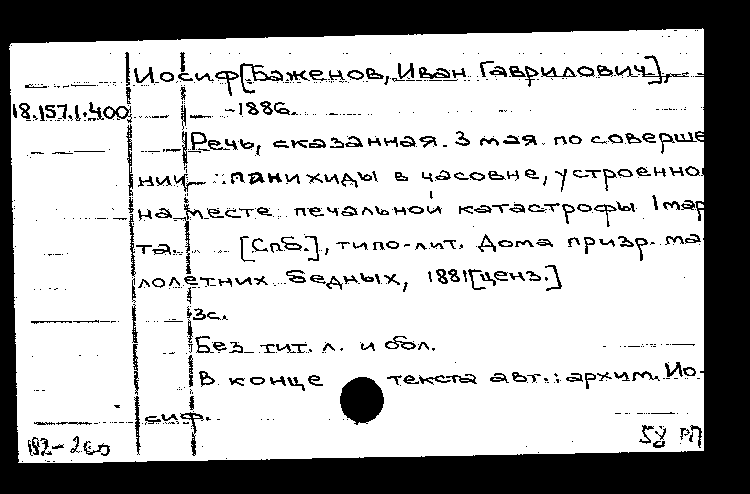 Иосиф [Баженов, Иван Гаврилович],
18.157.1.400 -1886.
Речь, сказанная 3 мая по соверше
нии панихиды в часовне, устроенно
на месте печальной катастрофы 1 мар
та. [Спб.], типо-лит. Дома призр. ма
лолетних бедных, 1881 [ценз.]
3с.
Без тит. л. и обл.
В конце текста авт.: архим. Ио-
сиф.
182-2
58 РП